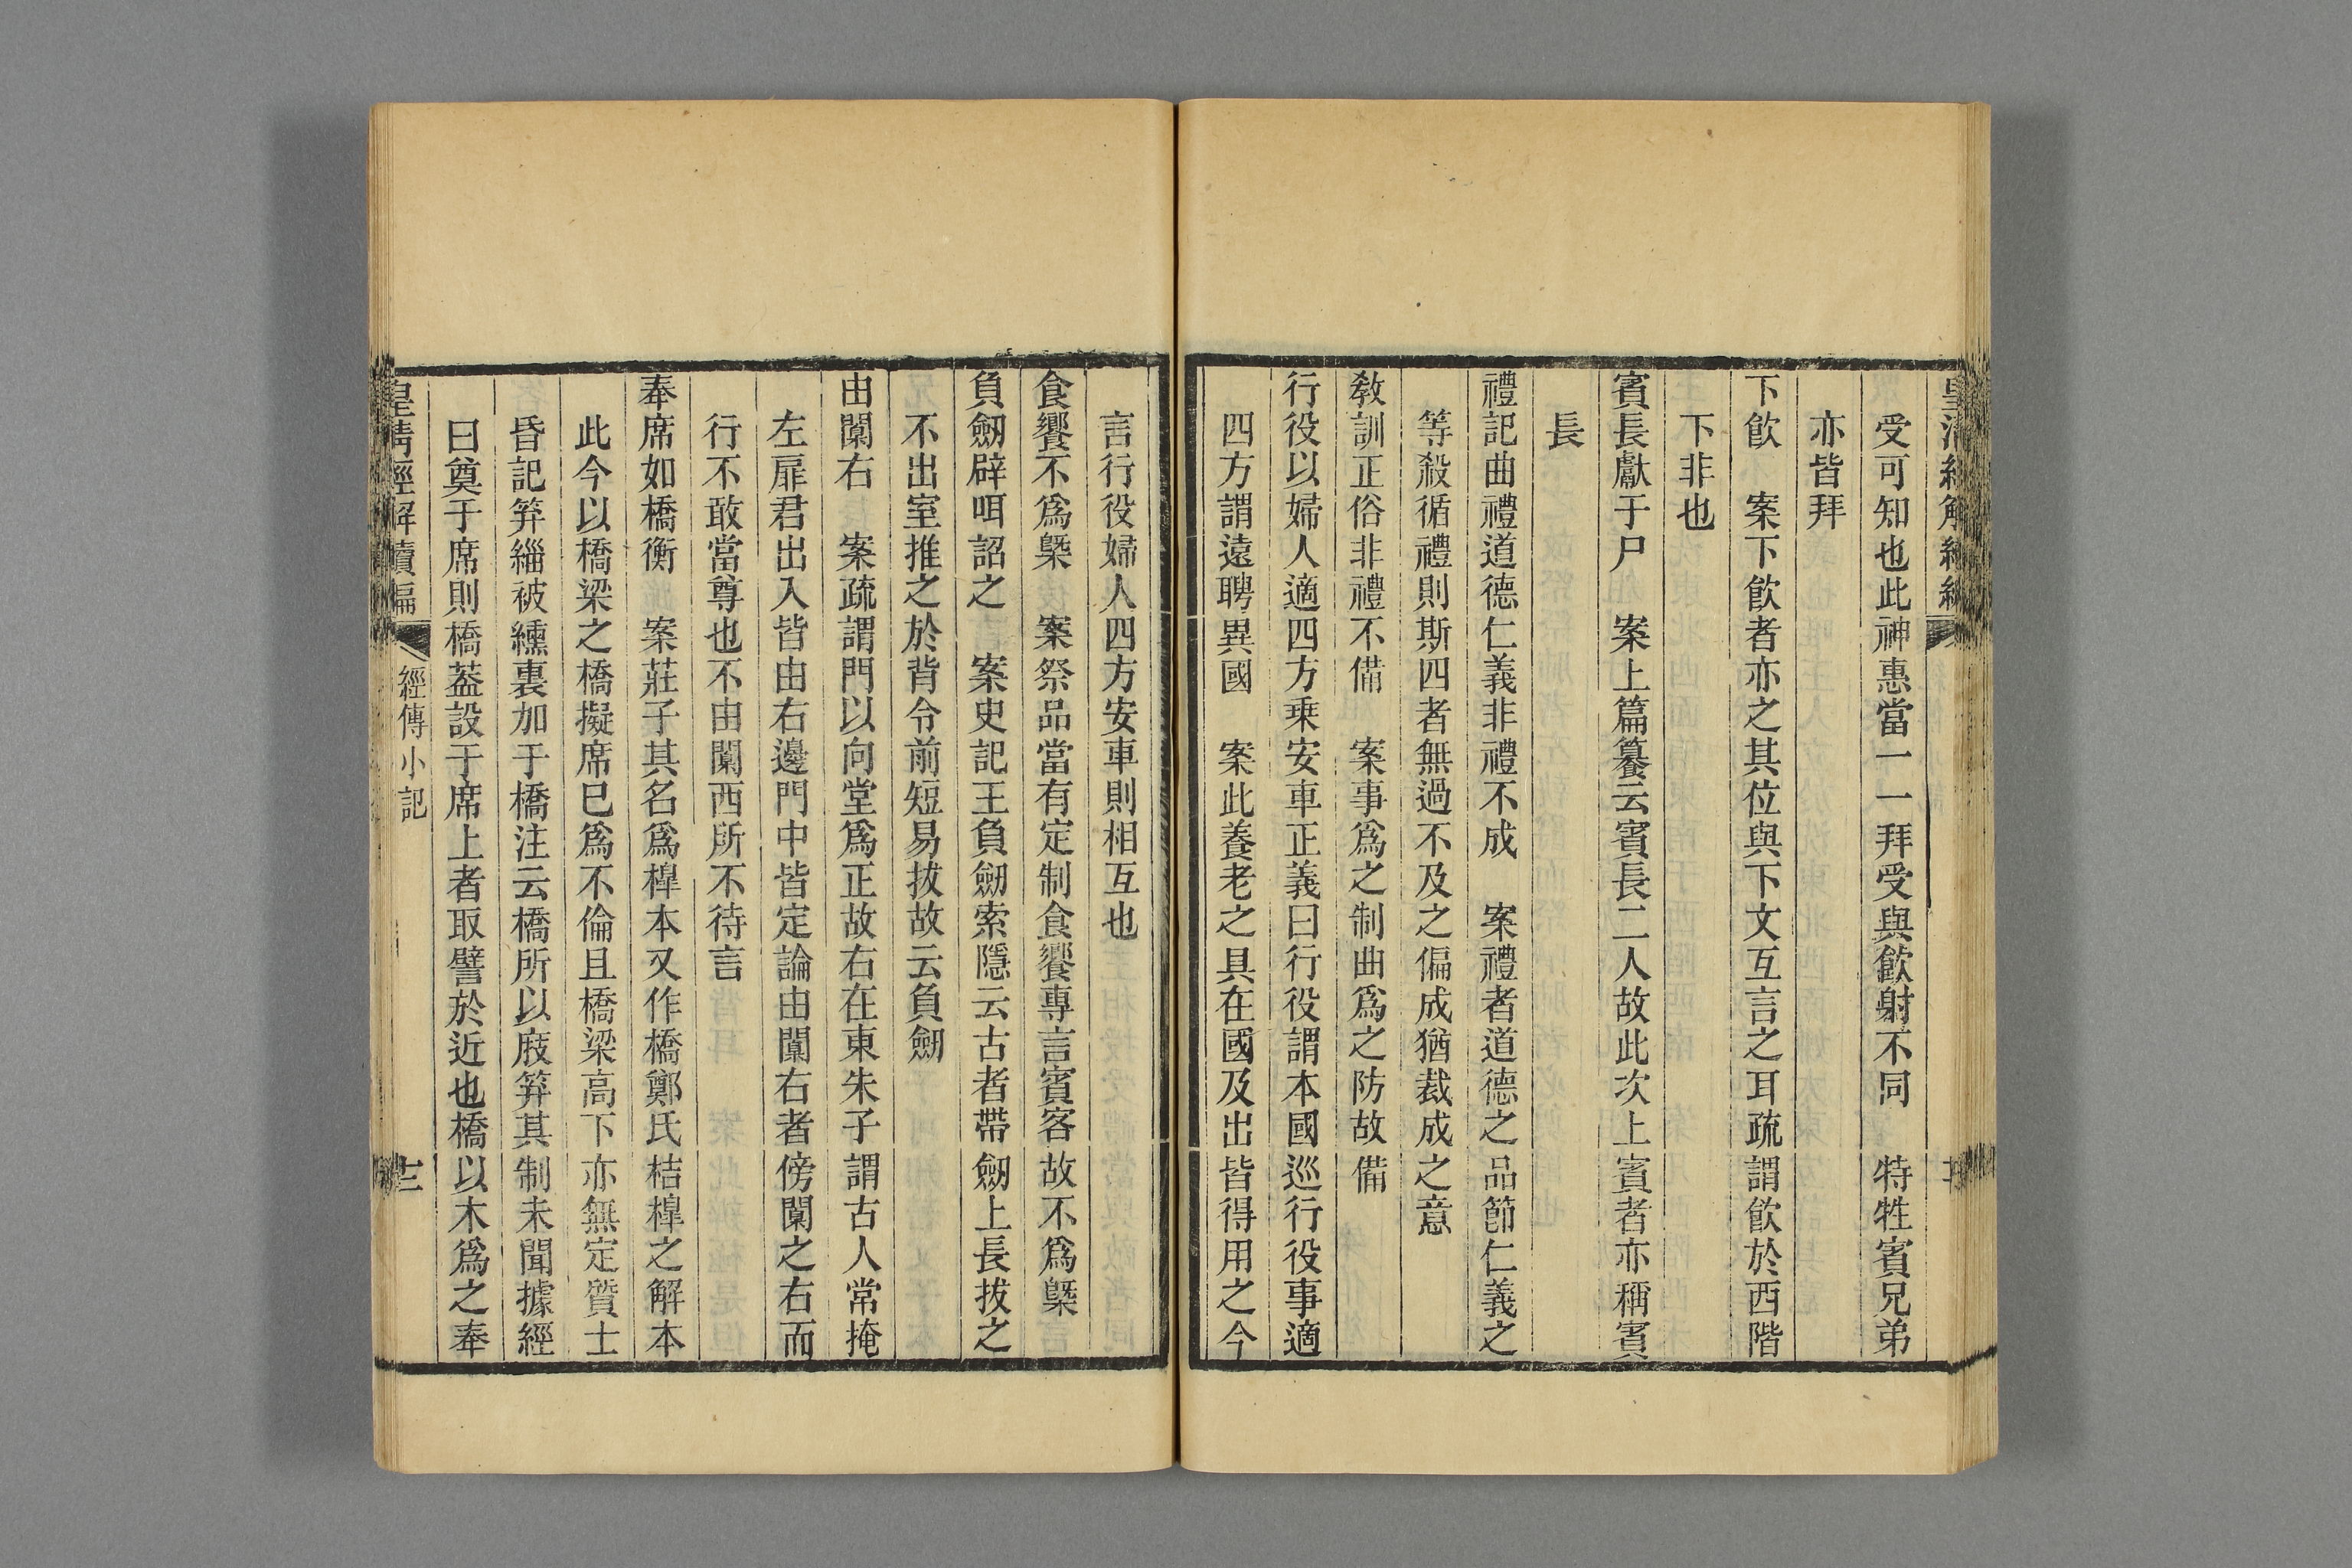 受可知也此神惠當一一拜受與飲射不同　特牲賓兄弟
亦皆拜
下飲　案下飲者亦之其位與下文互言之耳疏謂飲於西階
下非也
賓長獻于尸　案上篇籑云賓長二人故此次上賓者亦稱賓
長
禮記曲禮道德仁義非禮不成　案禮者道德之品節仁義之
等殺循禮則斯四者無過不及之偏成猶裁成之意
敎訓正俗非禮不備　案事爲之制曲爲之防故備
行役以婦人適四方乘安車正義曰行役謂本國巡行役事適
四方謂遠聘異國　案此養老之具在國及出皆得用之今
言行役婦人四方安車則相互也
食饗不爲槩　案祭品當有定制食饗專言賓客故不爲槩
負劒辟咡詔之　案史記王負劒索隱云古者帶劒上長拔之
不出室推之於背令前短易拔故云負劒
由闑右　案疏謂門以向堂爲正故右在東朱子謂古人常掩
左扉君出入皆由右邊門中皆定論由闑右者傍闑之右而
行不敢當尊也不由闑西所不待言
奉席如橋衡　案莊子其名爲橰本又作橋鄭氏桔橰之解本
此今以橋梁之橋擬席巳爲不倫且橋梁高下亦無定質士
昏記笲緇被纁裏加于橋注云橋所以庪笲其制未聞據經
曰奠于席則橋蓋設于席上者取譬於近也橋以木爲之奉
皇淸經解續編
經傳小記